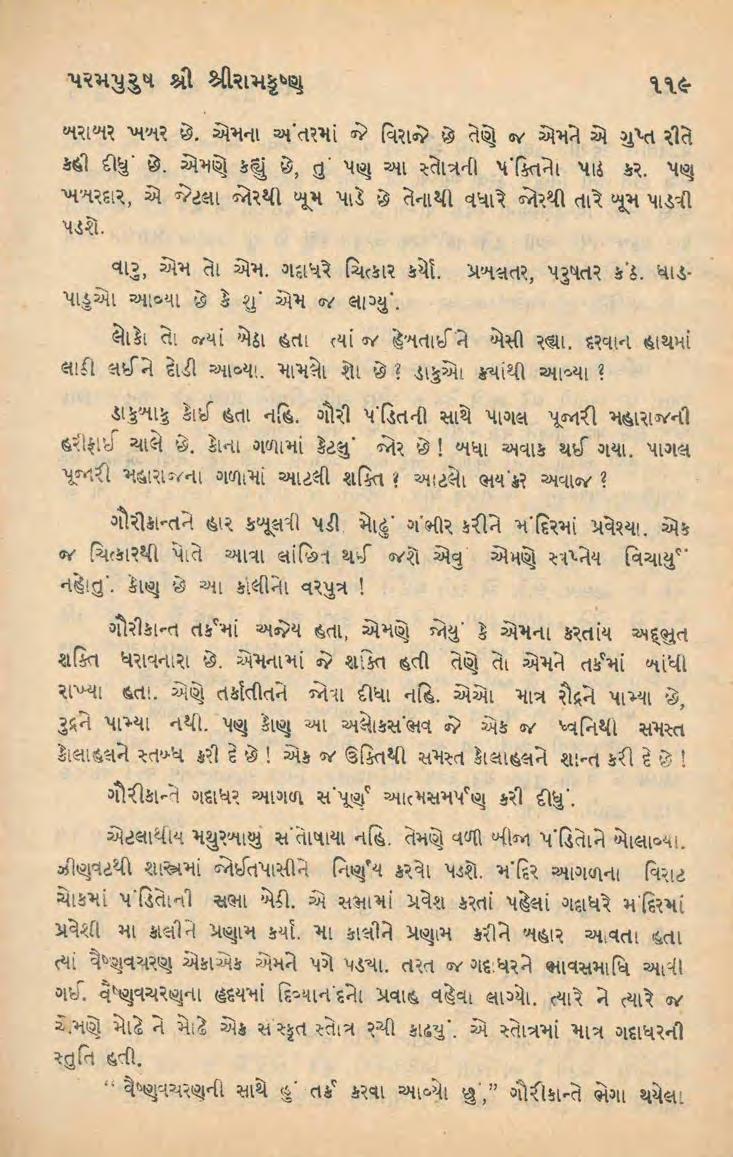 પરમપુરુષ શ્રી શ્રીરામકૃષ્ણ ૧૧૯
બરાબર ખબર છે. એમના અંતરમાં જે વિરાજે છે તેણે જ એમને એ ગુપ્ત રીતે
કહી દીધું છે. એમણે કહ્યું છે, તું પણ આ સ્તોત્રની પંક્તિનો પાઠ કર. પણ
ખબરદાર, એ જેટલા જોરથી બૂમ પાડે છે તેનાથી વધારે જોરથી તારે બૂમ પાડવી
પડશે.
વારુ, એમ તો એમ. ગદાધરે ચિત્કાર કર્યો. પ્રબલતર, પરુષતર કંઠે. ધાડ-
પાડુઓ આવ્યા છે કે શું એમ જ લાગ્યું.
લોકો તો જ્યાં બેઠા હતા ત્યાં જ હેબતાઈને બેસી રહ્યા. દરવાન હાથમાં
લાઠી લઈને દોડી આવ્યા. મામલો શો છે? ડાકુઓ ક્યાંથી આવ્યા ?
ડાકુબાકુ કોઈ હતા નહિ. ગૌરી પંડિતની સાથે પાગલ પૂજારી મહારાજની
હરીફાઈ ચાલે છે. કોના ગળામાં કેટલું જોર છે! બધા અવાક થઈ ગયા. પાગલ
પૂજારી મહારાજના ગળામાં આટલી શક્તિ? આટલો ભયંકર અવાજ ?
ગૌરીકાન્તને હાર કબૂલવી પડી મોઢું ગંભીર કરીને મંદિરમાં પ્રવેશ્યા. એક
જ ચિત્કારથી પોતે આવા લાંછિત થઈ જશે એવું એમણે સ્વપ્નેય વિચાર્યું
નહોતું. કોણ છે આ કાલીનો વરપુત્ર !
ગૌરીકાન્ત તર્કમાં અજેય હતા, એમણે જોયું કે એમના કરતાંય અદ્દભુત
શક્તિ ધરાવનારા છે. એમનામાં જે શક્તિ હતી તેણે તો એમને તર્કમાં બાંધી
રાખ્યા હતા. એણે તર્કાતીતને જોવા દીધા નહિ. એઓ માત્ર રૌદ્રને પામ્યા છે,
રુદ્રને પામ્યા નથી. પણ કોણ આ અલોકસંભવ જે એક જ ધ્વનિથી સમસ્ત
કોલાહલને સ્તબ્ધ કરી દે છે! એક જ ઉક્તિથી સમસ્ત કોલાહલને શાન્ત કરી દે છે!
ગૌરીકાન્તે ગદાધર આગળ સંપૂર્ણ આત્મસમર્પણ કરી દીધું.
એટલાથીય મથુરબાબુ સંતોષાયા નહિ. તેમણે વળી બીજા પંડિતોને બોલાવ્યા.
ઝીણવટથી શાસ્ત્રમાં જોઈતપાસીને નિર્ણય કરવો પડશે. મંદિર આગળના વિરાટ
ચોકમાં પંડિતોની સભા બેઠી. એ સભામાં પ્રવેશ કરતાં પહેલાં ગદાધરે મંદિરમાં
પ્રવેશી મા કાલીને પ્રણામ કર્યાં. મા કાલીને પ્રણામ કરીને બહાર આવતા હતા
ત્યાં વૈષ્ણવચરણ એકાએક એમને પગે પડયા. તરત જ ગદાધરને ભાવસમાધિ આવી
ગઈ. વૈષ્ણવચરણના હૃદયમાં દિવ્યાનંદનો પ્રવાહ વહેવા લાગ્યો. ત્યારે ને ત્યારે જ
એમણે મોઢે ને મોઢે એક સંસ્કૃત સ્તોત્ર રચી કાઢયું. એ સ્તોત્રમાં માત્ર ગદાધરની
સ્તુતિ હતી.
“ વૈષ્ણવચરણની સાથે હું તર્ક કરવા આવ્યો છું,” ગૌરીકાન્તે ભેગા થયેલા